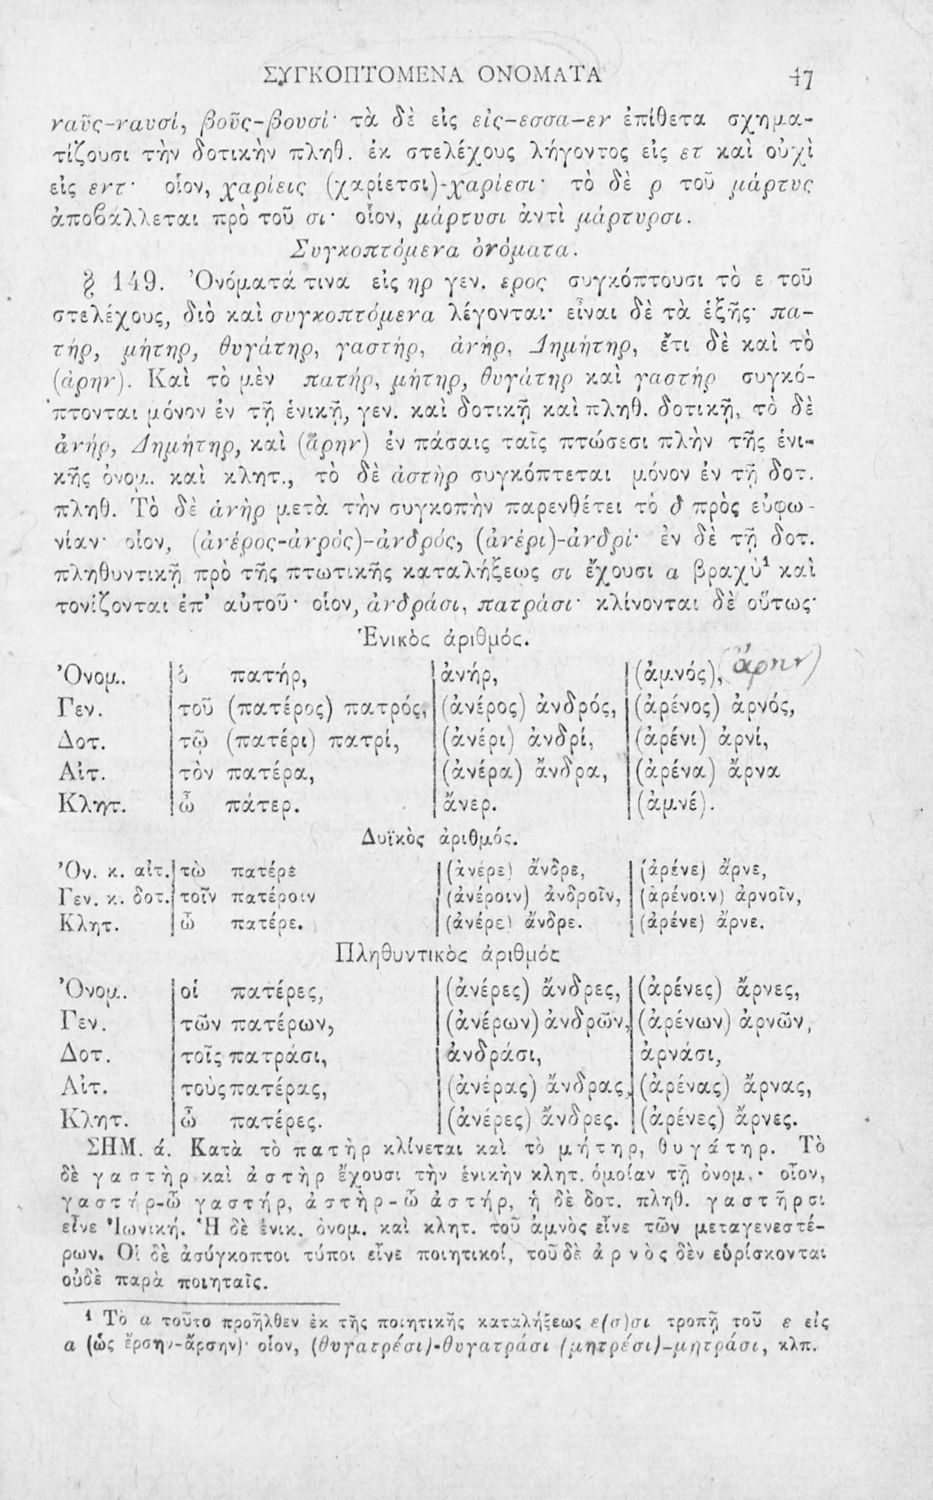 ΣΥΓΚΟΠΤΟΜΕΝΑ ΟΝΟΜΑΤΑ 47
ναῦς-ναυσί, βοῦς-βουσί· τὰ δὲ εἰς εἰς-εσσα-εν ἐπίθετα σχημα-
τίζουσι τὴν δοτικὴν πληθ. ἐκ στελέχους λήγοντος εἰς ετ καὶ οὐχὶ
εἰς εντ· οἷον, χαρίεις (χαρίετσι)-χαρίεσι· τὸ δὲ ρ τοῦ μάρτυς
ἀποβάλλεται πρὸ τοῦ σι· οἷον, μάρτυσι ἀντὶ μάρτυρσι.
Συγκοπτόμενα ὀνόματα.
§ 149. Ὀνόματά τινα εἰς ηρ γεν. ερος συγκόπτουσι τὸ ε τοῦ
στελέχους, διὸ καὶ συγκοπτόμενα λέγονται· εἶναι δὲ τὰ ἑξῆς· πα-
τήρ, μήτηρ, θυγάτηρ, γαστήρ, ἀνήρ, Δημήτηρ, ἔτι δὲ καὶ τὸ
(ἀρην). Καὶ τὸ μὲν πατήρ, μήτηρ, θυγάτηρ καὶ γαστὴρ συγκό-
πτονται μόνον ἐν τῇ ἑνικῇ, γεν. καὶ δοτικῇ καὶ πληθ. δοτικῇ, τὸ δὲ
ἀνήρ, Δημήτηρ, καὶ (ἄρην) ἐν πάσαις ταῖς πτώσεσι πλὴν τῆς ἑνι-
κῆς ὀνομ. καὶ κλητ., τὸ δὲ ἀστὴρ συγκόπτεται μόνον ἐν τῇ δοτ.
πληθ. Τὸ δὲ ἀνὴρ μετὰ τὴν συγκοπὴν παρενθέτει τὸ δ πρὸς εὐφω-
νίαν· οἷον, (ἀνέρος-ἀνρός)-ἀνδρός, (ἀνέρι)-ἀνδρί· ἐν δὲ τῇ δοτ.
πληθυντικῇ πρὸ τῆς πτωτικῆς καταλήξεως σι ἔχουσι α βραχὺ¹ καὶ
τονίζονται ἐπ' αὐτοῦ· οἷον, ἀνδράσι, πατράσι· κλίνονται δὲ οὕτως·
Ἑνικὸς ἀριθμός.
Ὀνομ. ὁ πατήρ, ἀνήρ, (ἀμνός), (ἄρην)
Γεν. τοῦ (πατέρος) πατρός, (ἀνέρος) ἀνδρός, (ἀρένος) ἀρνός,
Δοτ. τῷ (πατέρι) πατρί, (ἀνέρι) ἀνδρί, (ἀρένι) ἀρνί,
Αἰτ. τὸν πατέρα, (ἀνέρα) ἄνδρα, (ἀρένα) ἄρνα
Κλητ. ὦ πάτερ. ἄνερ. (ἀμνέ).
Δυϊκὸς ἀριθμός.
Ὀν. κ. αἰτ. τὼ πατέρε (ἀνέρε) ἄνδρε, (ἀρένε) ἄρνε,
Γεν. κ. δοτ. τοῖν πατέροιν (ἀνέροιν) ἀνδροῖν, (ἀρένοιν) ἀρνοῖν,
Κλητ. ὦ πατέρε. (ἀνέρε) ἄνδρε. (ἀρένε) ἄρνε.
Πληθυντικὸς ἀριθμός
Ὀνομ. οἱ πατέρες, (ἀνέρες) ἄνδρες, (ἀρένες) ἄρνες,
Γεν. τῶν πατέρων, (ἀνέρων) ἀνδρῶν, (ἀρένων) ἀρνῶν,
Δοτ. τοῖς πατράσι, ἀνδράσι, ἀρνάσι,
Αἰτ. τοὺς πατέρας, (ἀνέρας) ἄνδρας, (ἀρένας) ἄρνας,
Κλητ. ὦ πατέρες. (ἀνέρες) ἄνδρες. (ἀρένες) ἄρνες.
ΣΗΜ. ά. Κατὰ τὸ πατὴρ κλίνεται καὶ τὸ μήτηρ, θυγάτηρ. Τὸ
δὲ γαστὴρ καὶ ἀστὴρ ἔχουσι τὴν ἑνικὴν κλητ. ὁμοίαν τῇ ὀνομ.· οἷον,
γαστήρ-ὦ γαστήρ, ἀστὴρ-ὦ ἀστήρ, ἡ δὲ δοτ. πληθ. γαστῆρσι
εἶνε Ἰωνική. Ἡ δὲ ἑνικ. ὀνομ. καὶ κλητ. τοῦ ἀμνὸς εἶνε τῶν μεταγενεστέ-
ρων. Οἱ δὲ ἀσύγκοπτοι τύποι εἶνε ποιητικοί, τοῦ δὲ ἀρνὸς δὲν εὑρίσκονται
οὐδὲ παρὰ ποιηταῖς.
¹ Τὸ α τοῦτο προῆλθεν ἐκ τῆς ποιητικῆς καταλήξεως ε(σ)σι τροπῇ τοῦ ε εἰς
α (ὡς ἔρσην-ἄρσην)· οἷον, (θυγατρέσι)-θυγατράσι (μητρέσι)-μητράσι, κλπ.